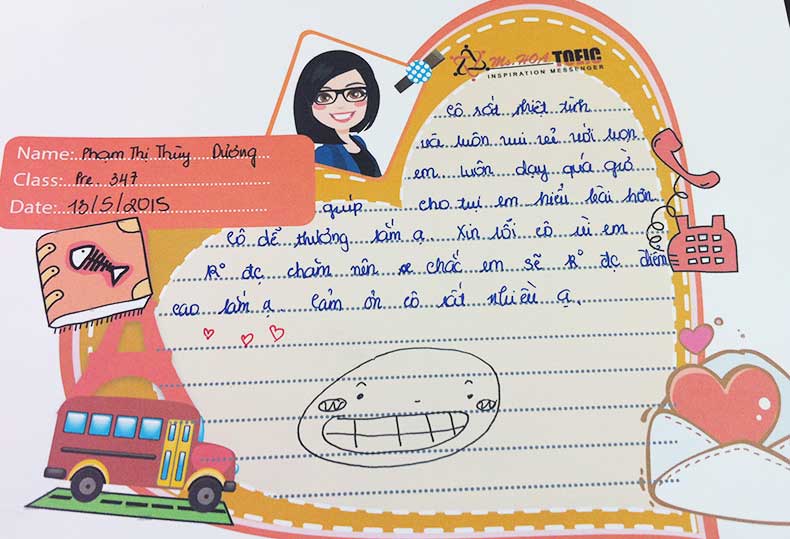 Ms.HOA TOEIC
INSPIRATION MESSENGER
Name: Phạm Thị Thùy Dương
Class: Pre 347
Date: 13/5/2015
Cô rất nhiệt tình
và luôn vui vẻ với bọn
em, luôn dạy quá giờ
giúp cho tụi em hiểu bài hơn
Cô dễ thương lắm ạ. Xin lỗi cô vì em
k° đc chăm nên chắc em sẽ k° đc điểm
cao lắm ạ. Cảm ơn cô rất nhiều ạ.